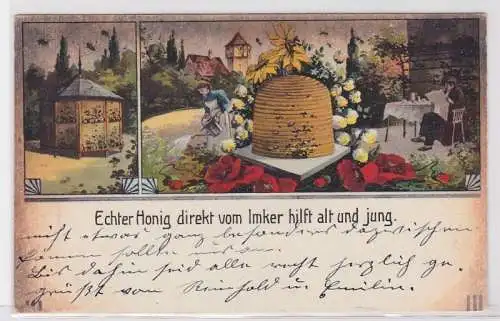 Echter Honig direkt vom Imker hilft alt und jung.
nicht etwas ganz besonders dazwischen
kommen sollte uns an.
Bis dahin seid alle recht herzlich ge-
grüßt von Reinhold u. Emilie.